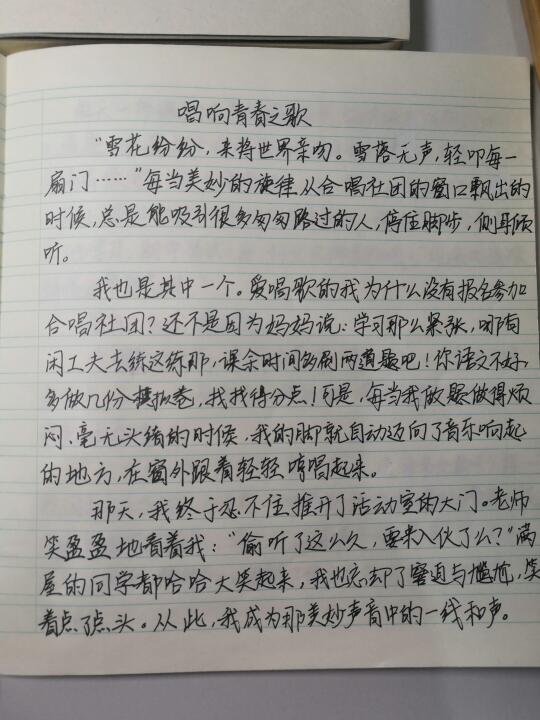 唱响青春之歌
“雪花纷纷，来将世界亲吻。雪落无声，轻叩每一
扇门……”每当美妙的旋律从合唱社团的窗口飘出的
时候，总是能吸引很多匆匆路过的人，停住脚步，侧耳倾
听。
我也是其中一个。爱唱歌的我为什么没有报名参加
合唱社团？还不是因为妈妈说：学习那么紧张，哪有
闲工夫去练这练那，课余时间多刷两道题吧！你语文不好，
多做几份模拟卷，找找得分点！可是，每当我做题做得烦
闷、毫无头绪的时候，我的脚就自动迈向了音乐响起
的地方，在窗外跟着轻轻哼唱起来。
那天，我终于忍不住推开了活动室的大门。老师
笑盈盈地看着我：“偷听了这么久，要来入伙了么？”满
屋的同学都哈哈大笑起来，我也忘却了窘迫与尴尬，笑
着点了点头。从此，我成为那美妙声音中的一线和声。